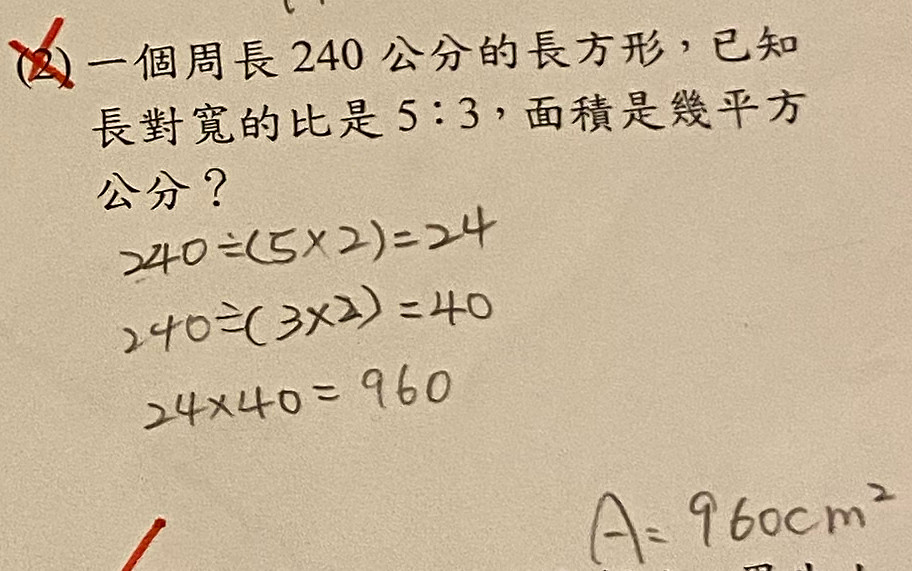 (2) 一個周長 240 公分的長方形，已知
長對寬的比是 5：3，面積是幾平方
公分？
240÷(5×2)=24
240÷(3×2)=40
24×40=960
A=960cm²